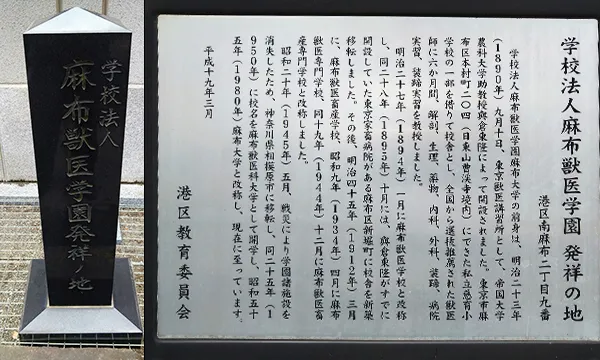 学校法人
麻布獣医学園発祥ノ地
学校法人麻布獣医学園 発祥の地
港区南麻布二丁目九番
学校法人麻布獣医学園麻布大学の前身は、明治二十三年
(1890年)九月十日、東京獣医講習所として、帝国大学
農科大学助教授與倉東隆によって開設されました。東京市麻
布区本村町二〇四(日東山曹渓寺境内)にできた私立慈育小
学校の一部を借りて校舎とし、全国から選抜推薦された獣医
師に六か月間、解剖、生理、薬物、内科、外科、装蹄、病院
実習、装蹄実習を教授しました。
明治二十七年(1894年)一月に麻布獣医学校と改称
し、同二十八年(1895年)十月には、與倉東隆がすでに
開設していた東京家畜病院がある麻布区新堀町に校舎を新築
移転しました。その後、明治四十五年(1912年)三月
に、麻布獣医畜産学校、昭和九年(1934年)四月に麻布
獣医専門学校、同十九年(1944年)十二月に麻布獣医畜
産専門学校と改称しました。
昭和二十年(1945年)五月、戦災により学園諸施設を
消失したため、神奈川県相模原市に移転し、同二十五年(1
950年)に校名を麻布獣医科大学として開学し、昭和五十
五年(1980年)麻布大学と改称し、現在に至っています。
平成十九年三月
港区教育委員会